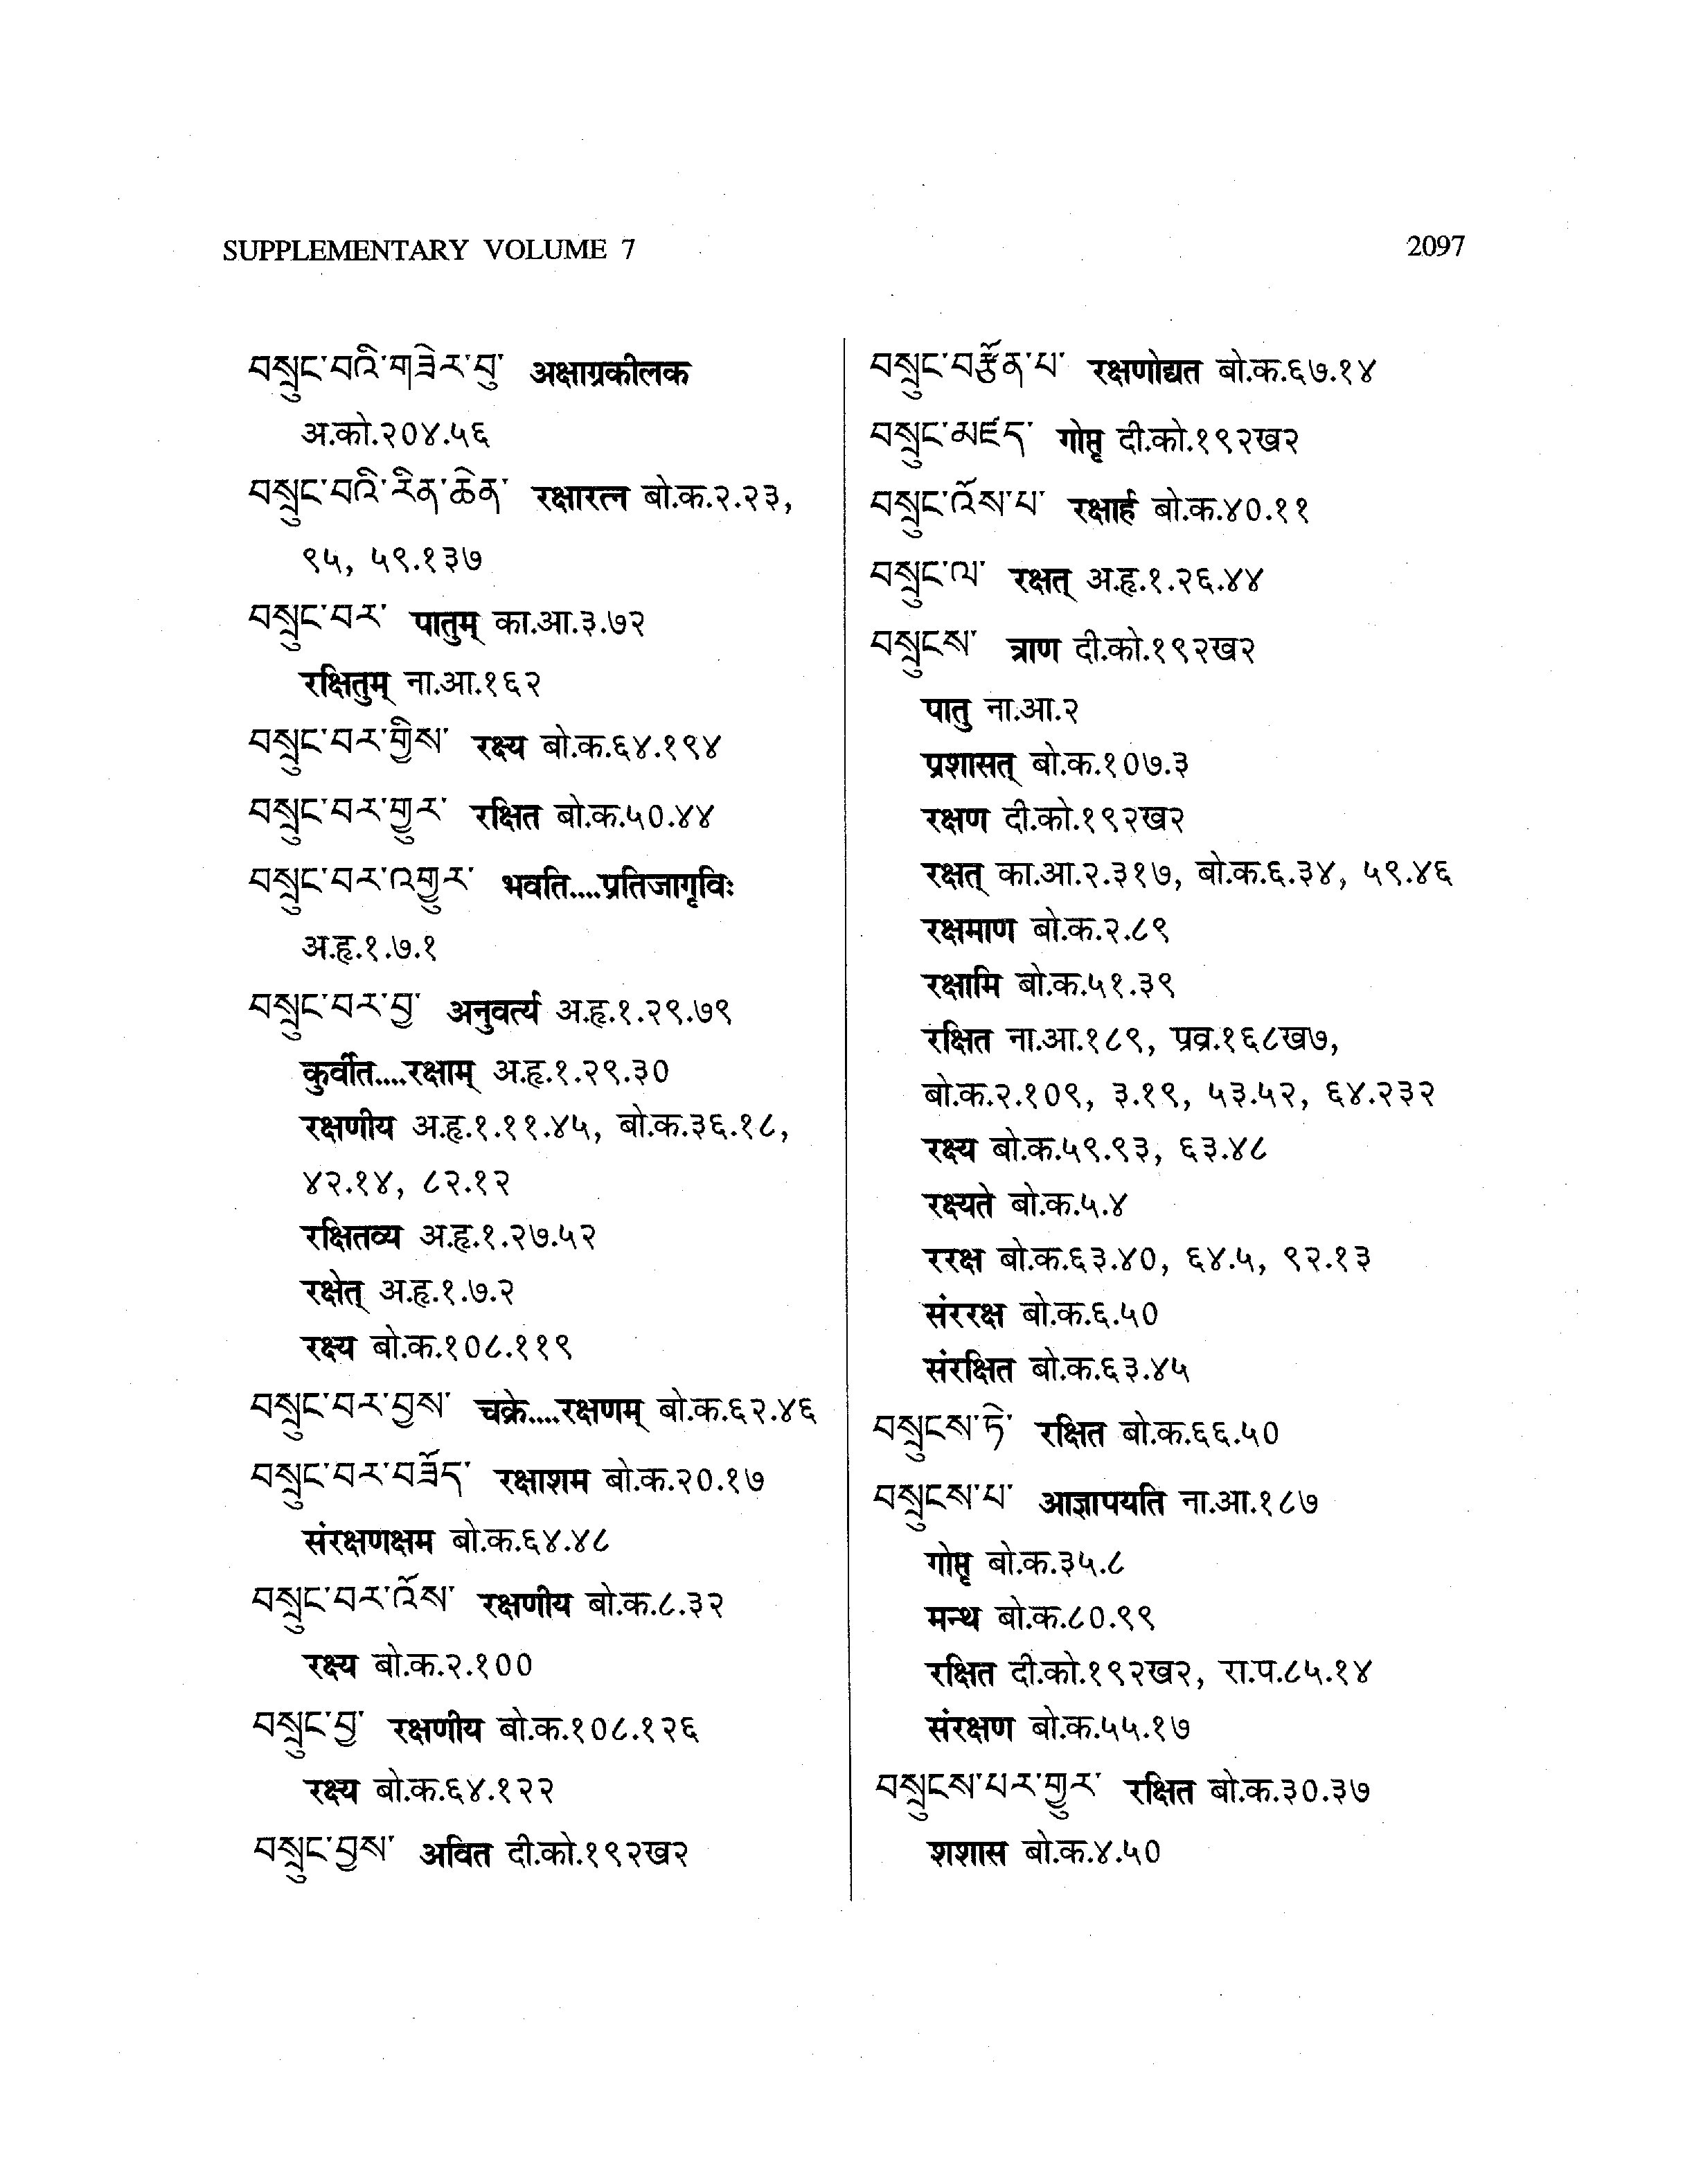 SUPPLEMENTARY VOLUME 7
2097
བསྲུང་བའི་གཟེར་བུ་ अक्षाग्रकीलक
अ.को.२०४.५६
བསྲུང་བའི་རིན་ཆེན་ रक्षारत्न बो.क.२.२३,
९५, ५९.१३७
བསྲུང་བར་ पातुम् का.आ.३.७२
रक्षितुम् ना.आ.१६२
བསྲུང་བར་གྱིས་ रक्ष्य बो.क.६४.१९४
བསྲུང་བར་གྱུར་ रक्षित बो.क.५०.४४
བསྲུང་བར་འགྱུར་ भवति....प्रतिजागृविः
अ.हृ.१.७.१
བསྲུང་བར་བྱ་ अनुवर्त्य अ.हृ.१.२९.७९
कुर्वीत....रक्षाम् अ.हृ.१.२९.३०
रक्षणीय अ.हृ.१.११.४५, बो.क.३६.१८,
४२.१४, ८२.१२
रक्षितव्य अ.हृ.१.२७.५२
रक्षेत् अ.हृ.१.७.२
रक्ष्य बो.क.१०८.११९
བསྲུང་བར་བྱས་ चक्रे....रक्षणम् बो.क.६२.४६
བསྲུང་བར་བཟོད་ रक्षाशम बो.क.२०.१७
संरक्षणक्षम बो.क.६४.४८
བསྲུང་བར་འོས་ रक्षणीय बो.क.८.३२
रक्ष्य बो.क.२.१००
བསྲུང་བྱ་ रक्षणीय बो.क.१०८.१२६
रक्ष्य बो.क.६४.१२२
བསྲུང་བྱས་ अवित दी.को.१९२ख२
བསྲུང་བརྩོན་པ་ रक्षणोद्यत बो.क.६७.१४
བསྲུང་མཛད་ गोप्तृ दी.को.१९२ख२
བསྲུང་འོས་པ་ रक्षार्ह बो.क.४०.११
བསྲུང་ལ་ रक्षत् अ.हृ.१.२६.४४
བསྲུངས་ त्राण दी.को.१९२ख२
पातु ना.आ.२
प्रशासत् बो.क.१०७.३
रक्षण दी.को.१९२ख२
रक्षत् का.आ.२.३१७, बो.क.६.३४, ५९.४६
रक्षमाण बो.क.२.८९
रक्षामि बो.क.५१.३९
रक्षित ना.आ.१८९, प्रव्र.१६८ख७,
बो.क.२.१०९, ३.१९, ५३.५२, ६४.२३२
रक्ष्य बो.क.५९.९३, ६३.४८
रक्ष्यते बो.क.५.४
ररक्ष बो.क.६३.४०, ६४.५, ९२.१३
संररक्ष बो.क.६.५०
संरक्षित बो.क.६३.४५
བསྲུངས་ཏེ་ रक्षित बो.क.६६.५०
བསྲུངས་པ་ आज्ञापयति ना.आ.१८७
गोप्तृ बो.क.३५.८
मन्थ बो.क.८०.९९
रक्षित दी.को.१९२ख२, रा.प.८५.१४
संरक्षण बो.क.५५.१७
བསྲུངས་པར་གྱུར་ रक्षित बो.क.३०.३७
शशास बो.क.४.५०